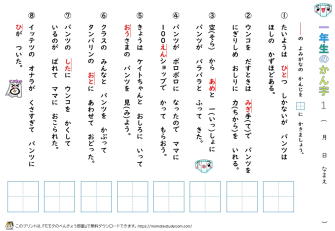 一年生のかん字 1 ( 月 日) なまえ ( )
___の よみがなの かん字を □ に かきましょう。
① たいようは ひとつ しかないが パンツは
ほしの かずほど ある。
② ウンコを だすときは みぎ(手)て で パンツを
にぎりしめ おしりに 力(ちから)を いれる。
③ 空(そら) から あめと 一(いっ)しょに
パンツが パラパラと ふって きた。
④ パンツが ボロボロに なったので ママに
100えんショップで かって もらおう。
⑤ きょうは ケイトちゃんと おしろに いって
おうさまの パンツを 見(み)よう。
⑥ クラスの みんなと パンツを かぶって
タンバリンの おとに あわせて おどった。
⑦ パンツの したに ウンコを かくして
いるのが ばれて ママに おこられた。
⑧ イッテツの オナラが くさすぎて パンツに
ひが ついた。
このプリントは、『モモタのべんきょう部屋』で無料ダウンロードできます。https://momotastudy.com/